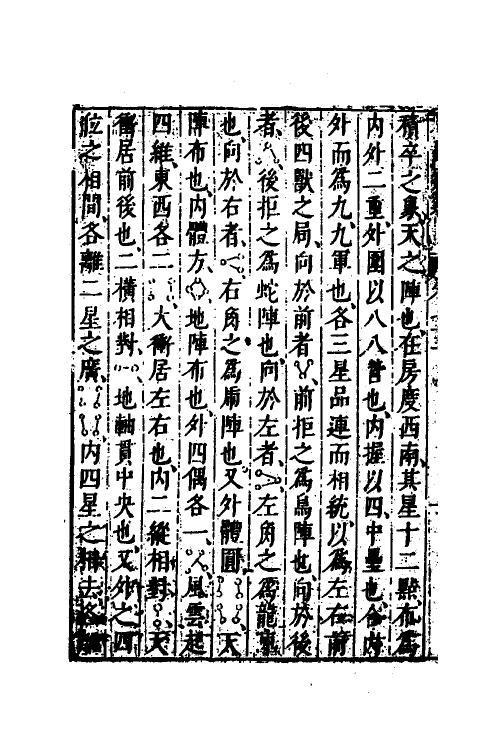 積卒之象天之陣也在房度西南其星十二點布為
内外二重外圍以八八營也内握以四中壘也合
外而為九九軍也各三星品連而相統以為左右前
後四獸之局向於前者前拒之為鳥陣也向於後
者後拒之為蛇陣也向於左者左角之為龍
也向於右者右角之為虎陣也又外體圓天
陣布也内體方地陣布也外四偶各一風雲起
四維東西各二大衝居左右也内二縱相對天
衝居前後也二橫相對地軸貫中央也又外之四
之相間各離二星之廣内四星之去